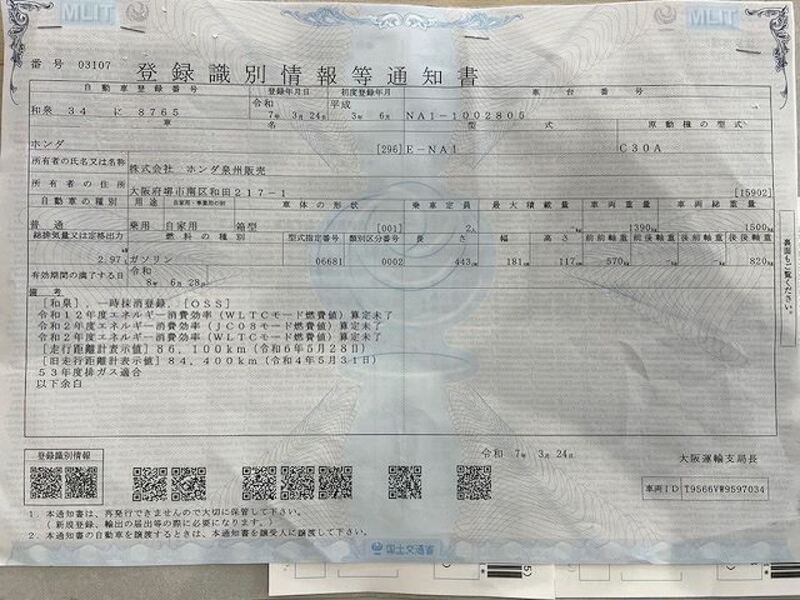 MLIT
MLIT
番号 03107
登録識別情報等通知書
自動車登録番号 登録年月日 初度登録年月 車台番号
和泉 34 に 8765 令和 7年 3月 24日 平成 3年 6月 NA1-1002805
車名 型式 原動機の型式
ホンダ [296] E-NA1 C30A
所有者の氏名又は名称 株式会社 ホンダ泉州販売
所有者の住所 大阪府堺市南区和田217-1 [15902]
自動車の種別 用途 自家用・事業用の別 車体の形状 乗車定員 最大積載量 車両重量 車両総重量
普通 乗用 自家用 箱型 [001] 2人 -kg 1390kg 1500kg
総排気量又は定格出力 燃料の種別 型式指定番号 類別区分番号 長さ 幅 高さ 前前軸重 前後軸重 後前軸重 後後軸重
2.97 ガソリン 06681 0002 443cm 181cm 117cm 570kg -kg -kg 820kg
有効期間の満了する日 令和 8年 6月 28日
裏面もご覧ください。
備考
[和泉],一時抹消登録,[OSS]
令和12年度エネルギー消費効率(WLTCモード燃費値)算定未了
令和2年度エネルギー消費効率(JC08モード燃費値)算定未了
令和2年度エネルギー消費効率(WLTCモード燃費値)算定未了
[走行距離計表示値]86,100km(令和6年5月28日)
[旧走行距離計表示値]84,400km(令和4年5月31日)
53年度排ガス適合
以下余白
令和 7年 3月 24日 大阪運輸支局長
登録識別情報
車両ID T9566VW9597034
1.本通知書は、再発行できませんので大切に保管して下さい。
(新規登録、輸出の届出等の際に必要になります。)
2.本通知書の自動車を譲渡するときは、本通知書を譲受人に譲渡して下さい。
国土交通省